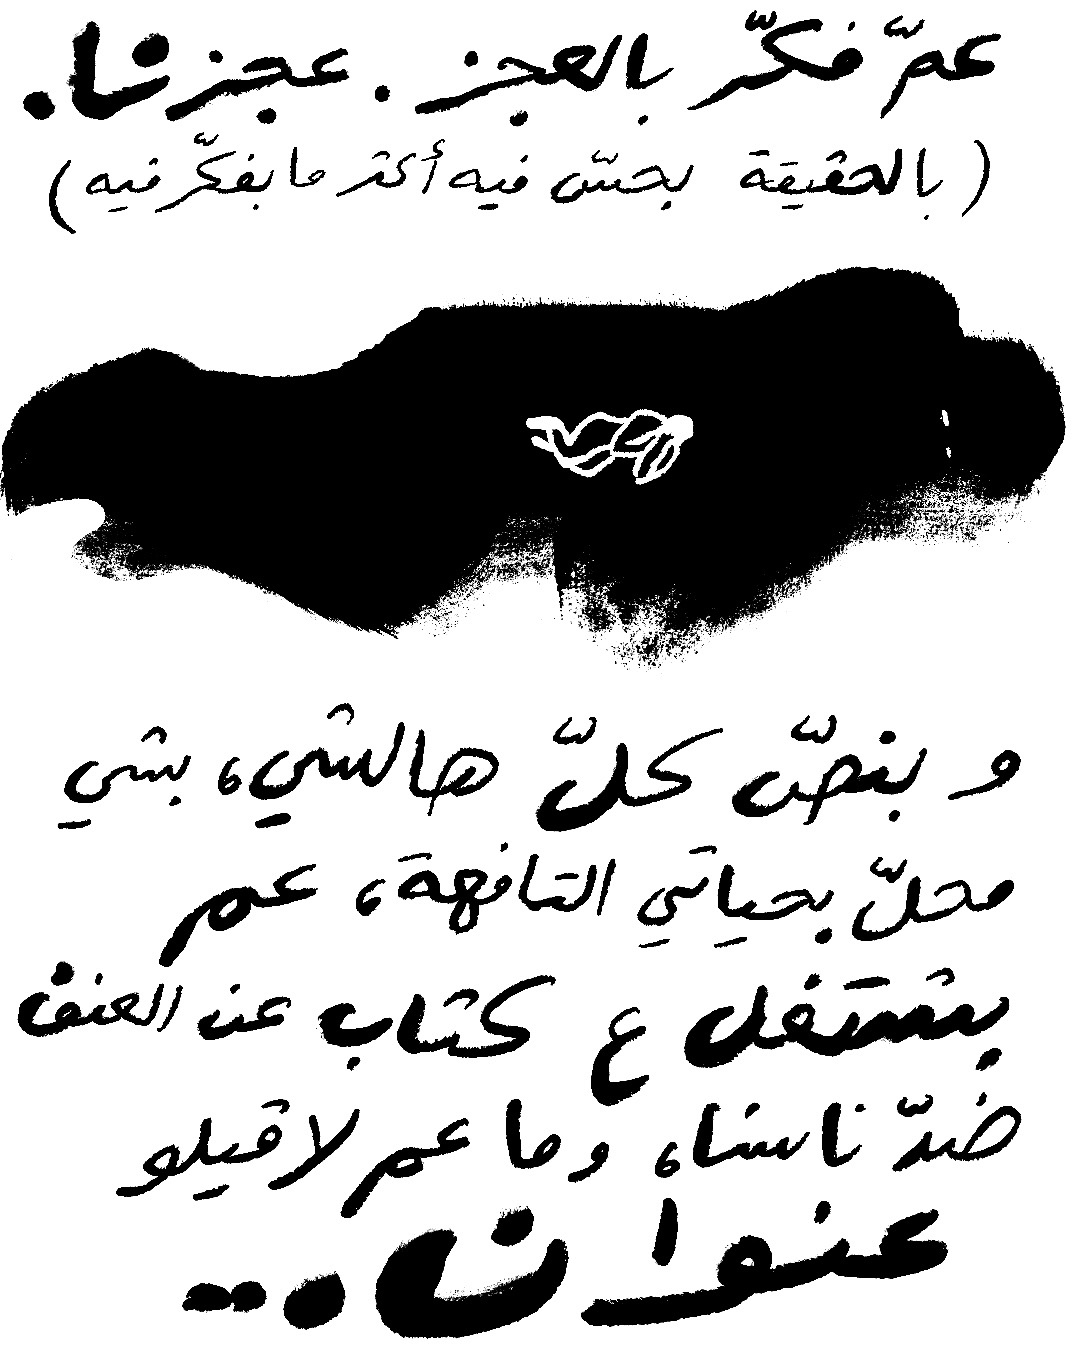 عمّ فكّر بالعجز. عجزنا.
(بالحقيقة بحسّ فيه أكتر ما بفكّر فيه)
و بنصّ كلّ هالشي، بشي
محلّ بحياتي التافهة، عم
بشتغل ع كتاب عن العنف
ضدّ ناسنا، وما عم لاقيلو
عنوان...